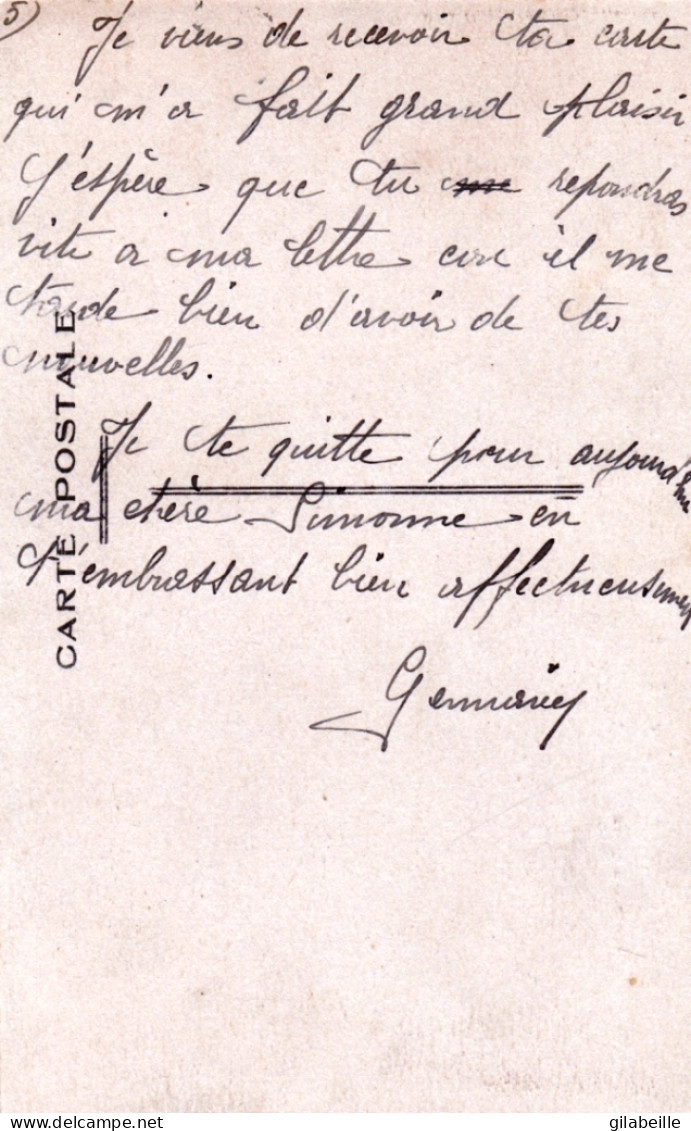 5)
Je viens de recevoir ta carte
qui m'a fait grand plaisir
J'espère que tu me repondras
vite a ma lettre car il me
tarde bien d'avoir de tes
nouvelles.
Je te quitte pour aujourd'hui
ma chère Simonne en
t'embrassant bien affectueusement
CARTE POSTALE
delcampe.net
gilabeille